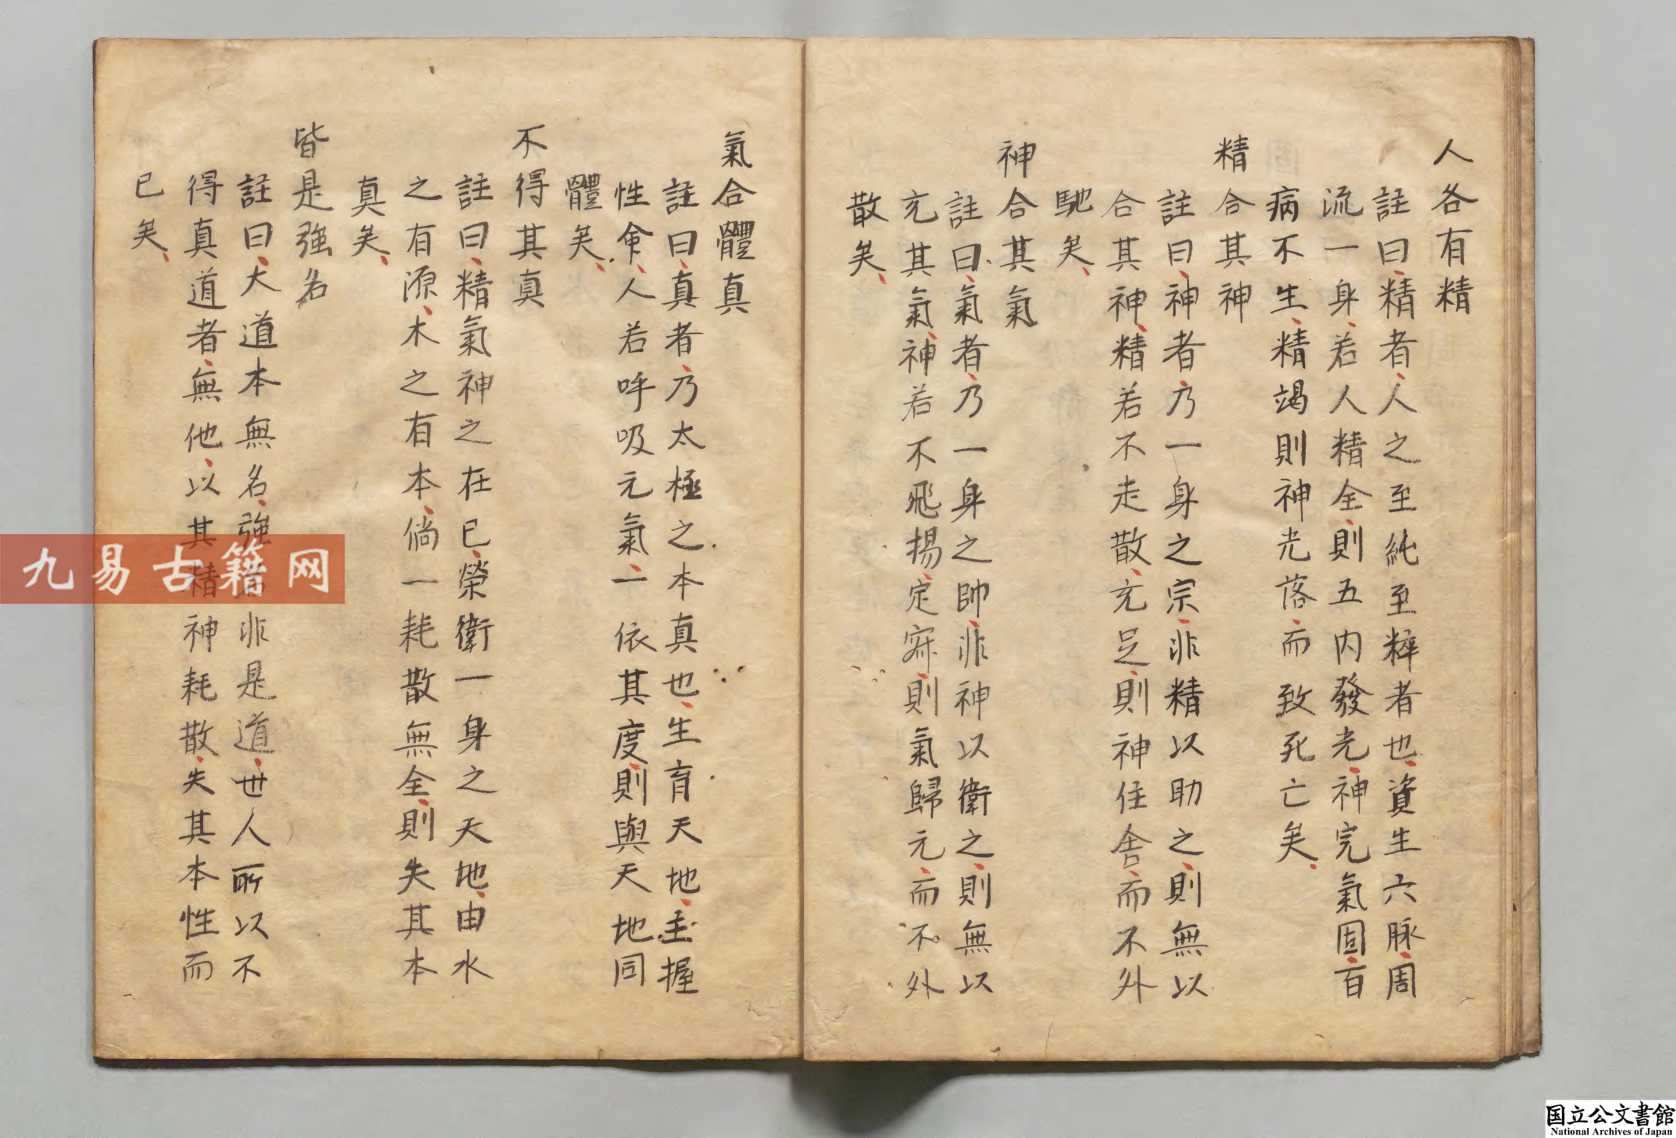 人各有精
註曰精者人之至純至粹者也資生六脉周
流一身若人精全則五内發光神完氣固百
病不生精竭則神光落而致死亡矣
精合其神
註曰神者乃一身之宗非精以助之則無以
合其神精若不走散充足則神住舍而不外
馳矣
神合其氣
註曰氣者乃一身之帥非神以衛之則無以
充其氣神若不飛揚定寂則氣歸元而不外
散矣
氣合體真
註曰真者乃太極之本真也生育天地主握
性命人若呼吸元氣一依其度則與天地同
體矣
不得其真
註曰精氣神之在已榮衛一身之天地由水
之有源木之有本倘一耗散無全則失其本
真矣
皆是強名
註曰大道本無名強非是道世人所以不
得真道者無他以其精神耗散失其本性而
已矣
九易古籍网
国立公文書館
National Archives of Japan